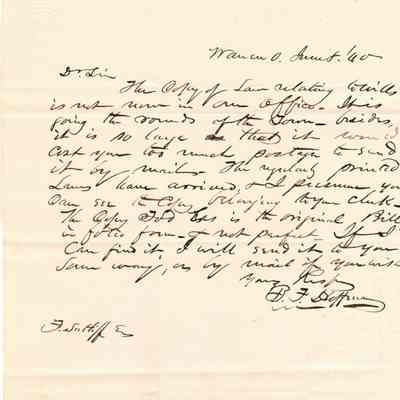 Warren O. June 8. '40
Dr Sir
The Copy of Law relating to wills
is not now in our office. It is
going the rounds of the Town - besides,
it is so large that it would
cost you too much postage to send
it by mail. The regularly printed
Laws have arrived, & I presume you
can see the Copy belonging to your Clerk.
The Copy is the original Bill
in folio form - & not perfect. If I
can find it I will send it to you
some way, or by mail if you wish
Yours Resp
B. F. Hoffman
F. Sutliff Esq